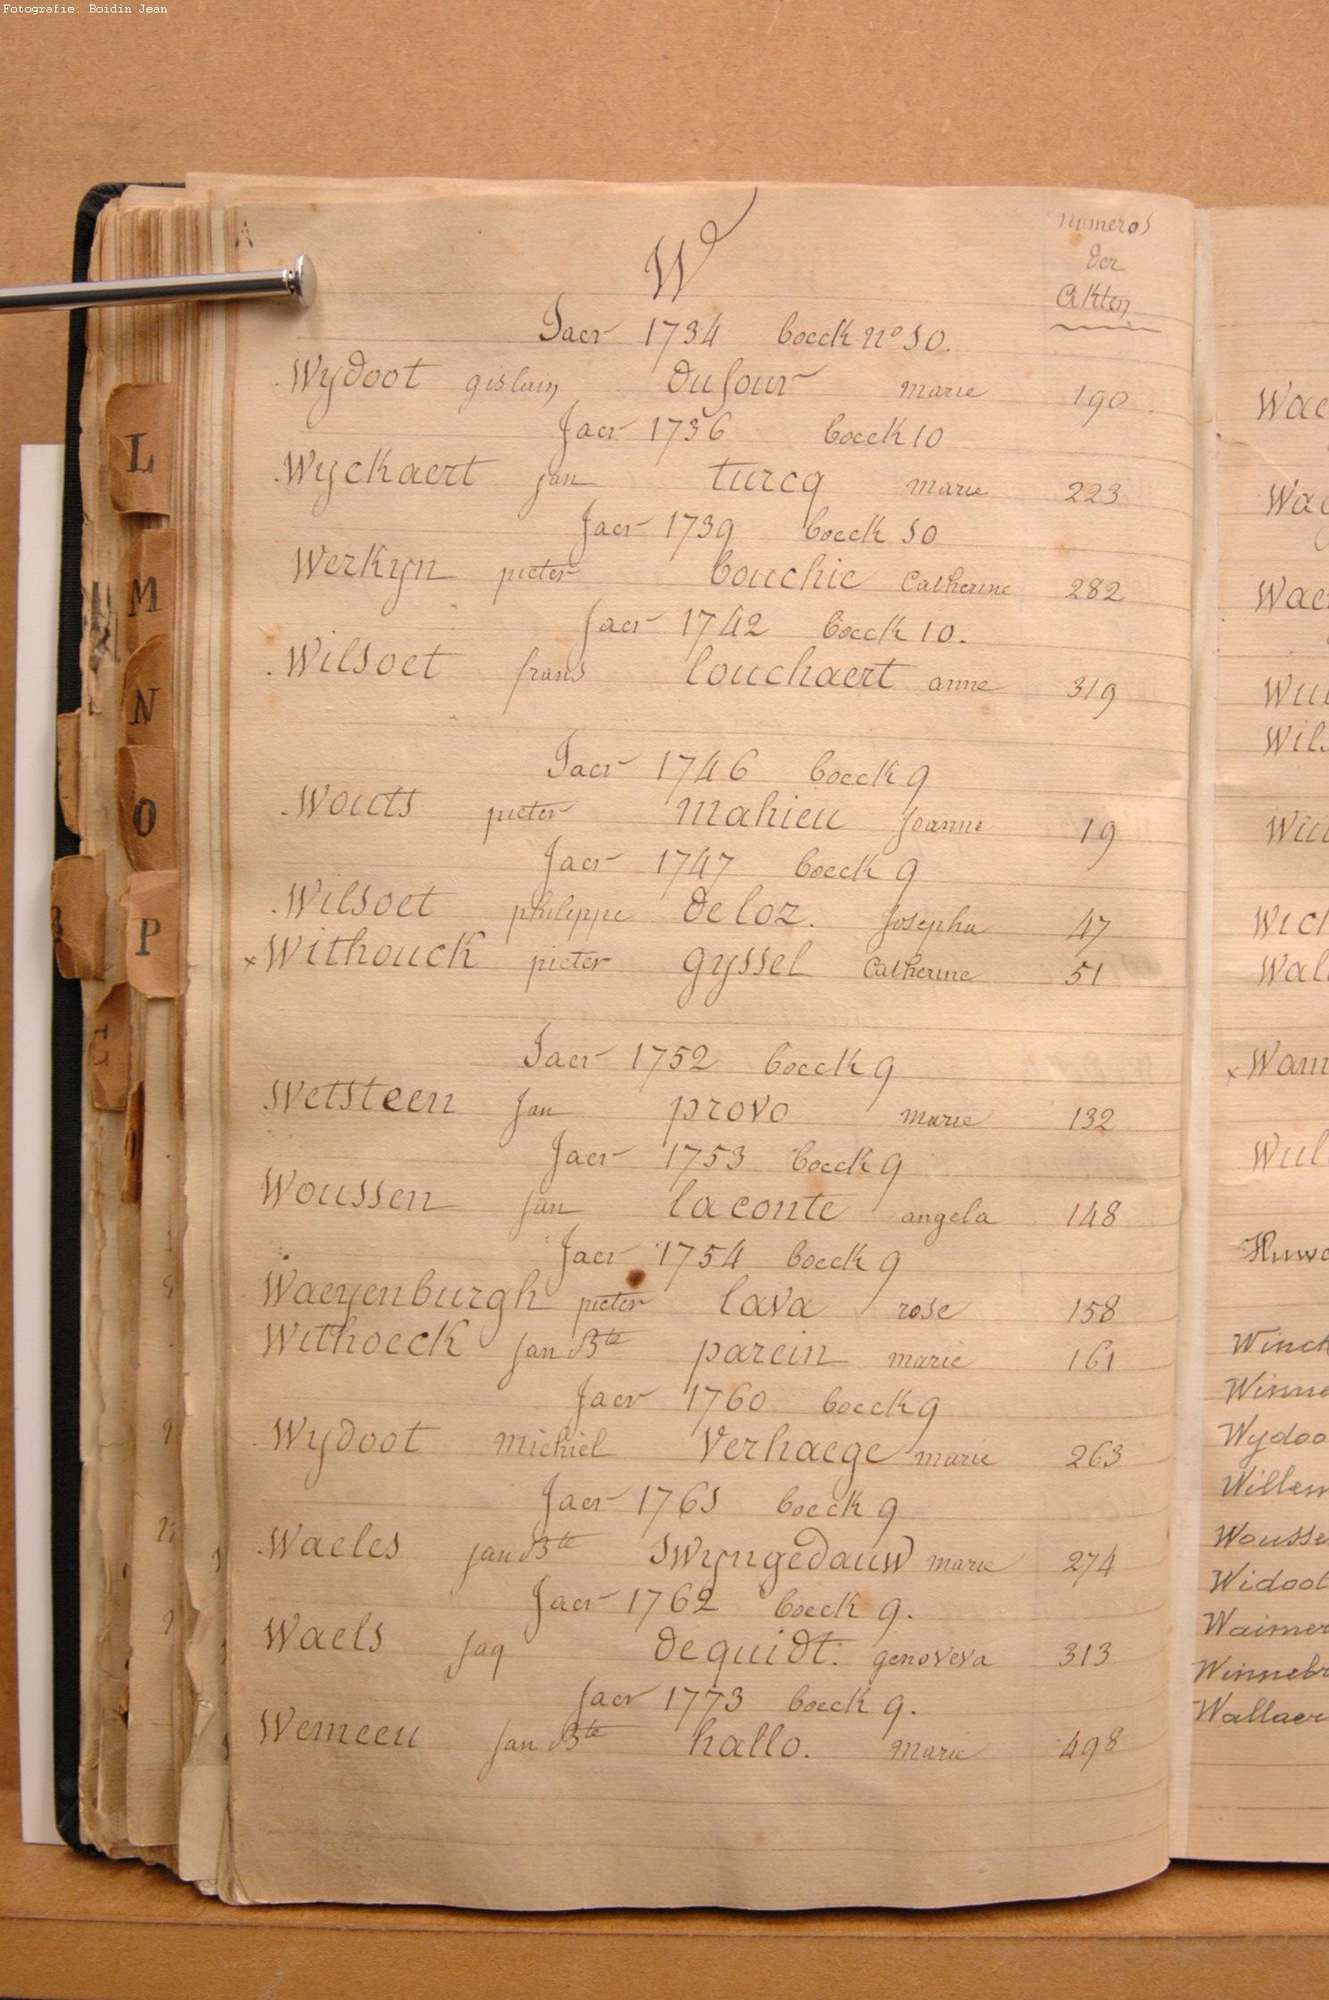 Fotografie: Boidin Jean
W
numeros
der
Akten
Jaer 1734 boeck nº 10.
Wydoot gislain dufour marie 190
Jaer 1736 boeck 10
Wyckaert jan turcq marie 223
Jaer 1739 boeck 10
Werkyn pieter bouchie Catherine 282
Jaer 1742 boeck 10.
Wilsoet frans louchaert anne 319
Jaer 1746 boeck 9
Wouts pieter Mahieu Joanne 19
Jaer 1747 boeck 9
Wilsoet philippe deloz. Josepha 47
x Withouck pieter gyssel Catherine 51
Jaer 1752 boeck 9
Wetsteen Jan provo marie 132
Jaer 1753 boeck 9
Woussen jan laconte angela 148
Jaer 1754 boeck 9
Waeyenburgh pieter lava rose 158
Withoeck jan Bte parein marie 161
Jaer 1760 boeck 9
Wydoot michiel Verhaege marie 263
Jaer 1761 boeck 9
Waeles jan Bte Swyngedauw marie 274
Jaer 1762 boeck 9.
Waels jaq dequidt. genoveva 313
Jaer 1773 boeck 9.
Wemeeu jan Bte hallo. Marie 498
L
M
N
O
P